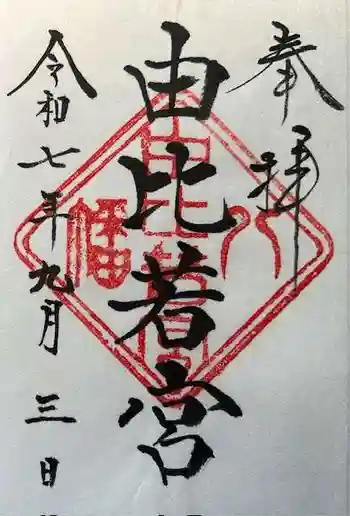 奉拝
由比若宮
八幡
令和七年九月三日